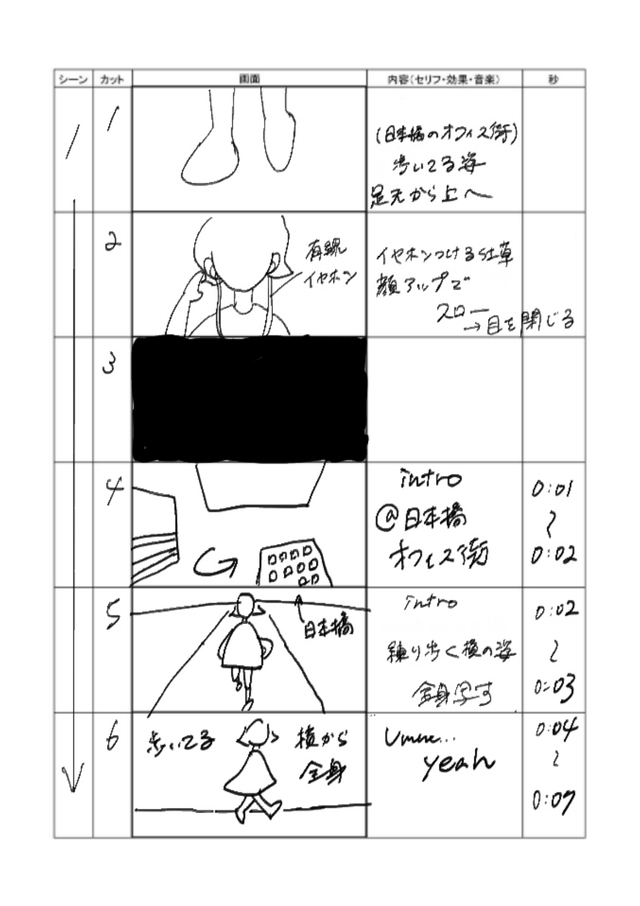 シーン カット 画面 内容(セリフ・効果・音楽) 秒
1
1
(日本橋のオフィス街)
歩いてる姿
足元から上へ
2
有線
イヤホン
イヤホンつける仕草
顔アップで
スロー
→目を閉じる
3
4
intro
@日本橋
オフィス街
0:01
〜
0:02
5
日本橋
intro
練り歩く横の姿
全身写す
0:02
〜
0:03
6
歩いてる
横から
全身
Umm...
yeah
0:04
〜
0:07